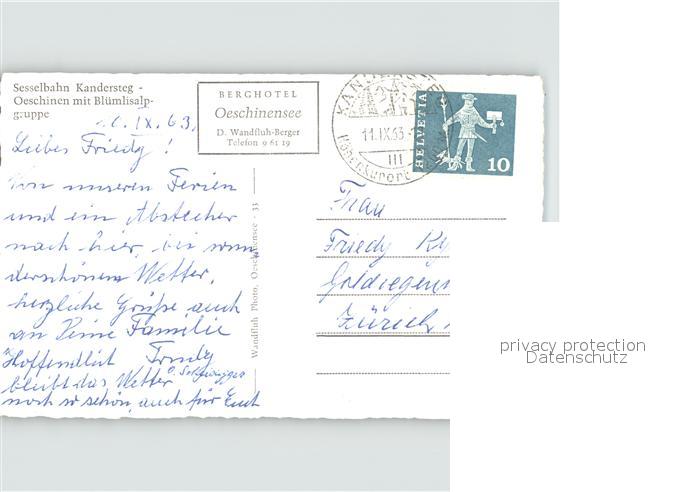 Sesselbahn Kandersteg -
Oeschinen mit Blümlisalp-
gruppe
BERGHOTEL
Oeschinensee
D. Wandfluh-Berger
Telefon 9 61 19
KANDERSTEG
11.IX.63
III
Höhenkurort
HELVETIA
10
IX. 63.
Liebes Friedy !
Von unseren Ferien
und ein Abstecher
nach hier, bei wun
derschönem Wetter,
herzliche Grüße auch
an Deine Familie
Hoffendlich Trudy
bleibt das Wetter
noch so schön, auch für Euch
Wandfluh Photo, Oeschinensee - 33
Frau
Friedy
Zürich
privacy protection
Datenschutz